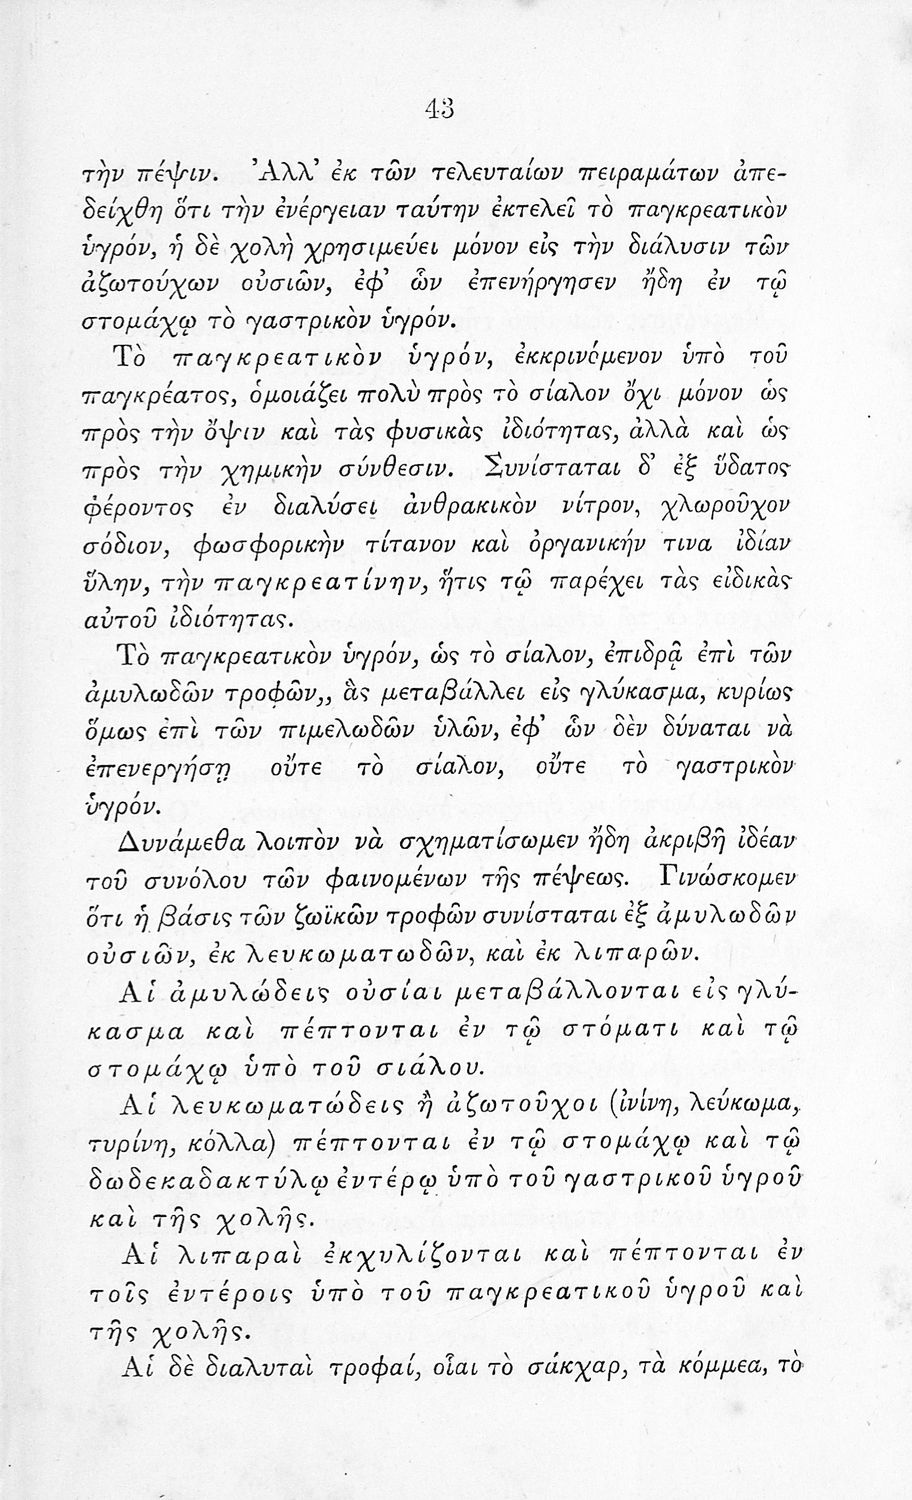 43
τὴν πέψιν. Ἀλλ’ ἐκ τῶν τελευταίων πειραμάτων ἀπε-
δείχθη ὅτι τὴν ἐνέργειαν ταύτην ἐκτελεῖ τὸ παγκρεατικὸν
ὑγρόν, ἡ δὲ χολὴ χρησιμεύει μόνον εἰς τὴν διάλυσιν τῶν
ἀζωτούχων οὐσιῶν, ἐφ’ ὧν ἐπενήργησεν ἤδη ἐν τῷ
στομάχῳ τὸ γαστρικὸν ὑγρόν.
Τὸ παγκρεατικὸν ὑγρόν, ἐκκρινόμενον ὑπὸ τοῦ
παγκρέατος, ὁμοιάζει πολὺ πρὸς τὸ σίαλον ὄχι μόνον ὡς
πρὸς τὴν ὄψιν καὶ τὰς φυσικὰς ἰδιότητας, ἀλλὰ καὶ ὡς
πρὸς τὴν χημικὴν σύνθεσιν. Συνίσταται δ’ ἐξ ὕδατος
φέροντος ἐν διαλύσει ἀνθρακικὸν νίτρον, χλωροῦχον
σόδιον, φωσφορικὴν τίτανον καὶ ὀργανικήν τινα ἰδίαν
ὕλην, τὴν παγκρεατίνην, ἥτις τῷ παρέχει τὰς εἰδικὰς
αὐτοῦ ἰδιότητας.
Τὸ παγκρεατικὸν ὑγρόν, ὡς τὸ σίαλον, ἐπιδρᾷ ἐπὶ τῶν
ἀμυλωδῶν τροφῶν,, ἃς μεταβάλλει εἰς γλύκασμα, κυρίως
ὅμως ἐπὶ τῶν πιμελωδῶν ὑλῶν, ἐφ’ ὧν δὲν δύναται νὰ
ἐπενεργήσῃ οὔτε τὸ σίαλον, οὔτε τὸ γαστρικὸν
ὑγρόν.
Δυνάμεθα λοιπὸν νὰ σχηματίσωμεν ἤδη ἀκριβῆ ἰδέαν
τοῦ συνόλου τῶν φαινομένων τῆς πέψεως. Γινώσκομεν
ὅτι ἡ βάσις τῶν ζωϊκῶν τροφῶν συνίσταται ἐξ ἀμυλωδῶν
οὐσιῶν, ἐκ λευκωματωδῶν, καὶ ἐκ λιπαρῶν.
Αἱ ἀμυλώδεις οὐσίαι μεταβάλλονται εἰς γλύ-
κασμα καὶ πέπτονται ἐν τῷ στόματι καὶ τῷ
στομάχῳ ὑπὸ τοῦ σιάλου.
Αἱ λευκωματώδεις ἢ ἀζωτοῦχοι (ἰνίνη, λεύκωμα,
τυρίνη, κόλλα) πέπτονται ἐν τῷ στομάχῳ καὶ τῷ
δωδεκαδακτύλῳ ἐντέρῳ ὑπὸ τοῦ γαστρικοῦ ὑγροῦ
καὶ τῆς χολῆς.
Αἱ λιπαραὶ ἐκχυλίζονται καὶ πέπτονται ἐν
τοῖς ἐντέροις ὑπὸ τοῦ παγκρεατικοῦ ὑγροῦ καὶ
τῆς χολῆς.
Αἱ δὲ διαλυταὶ τροφαί, οἷαι τὸ σάκχαρ, τὰ κόμμεα, τὸ